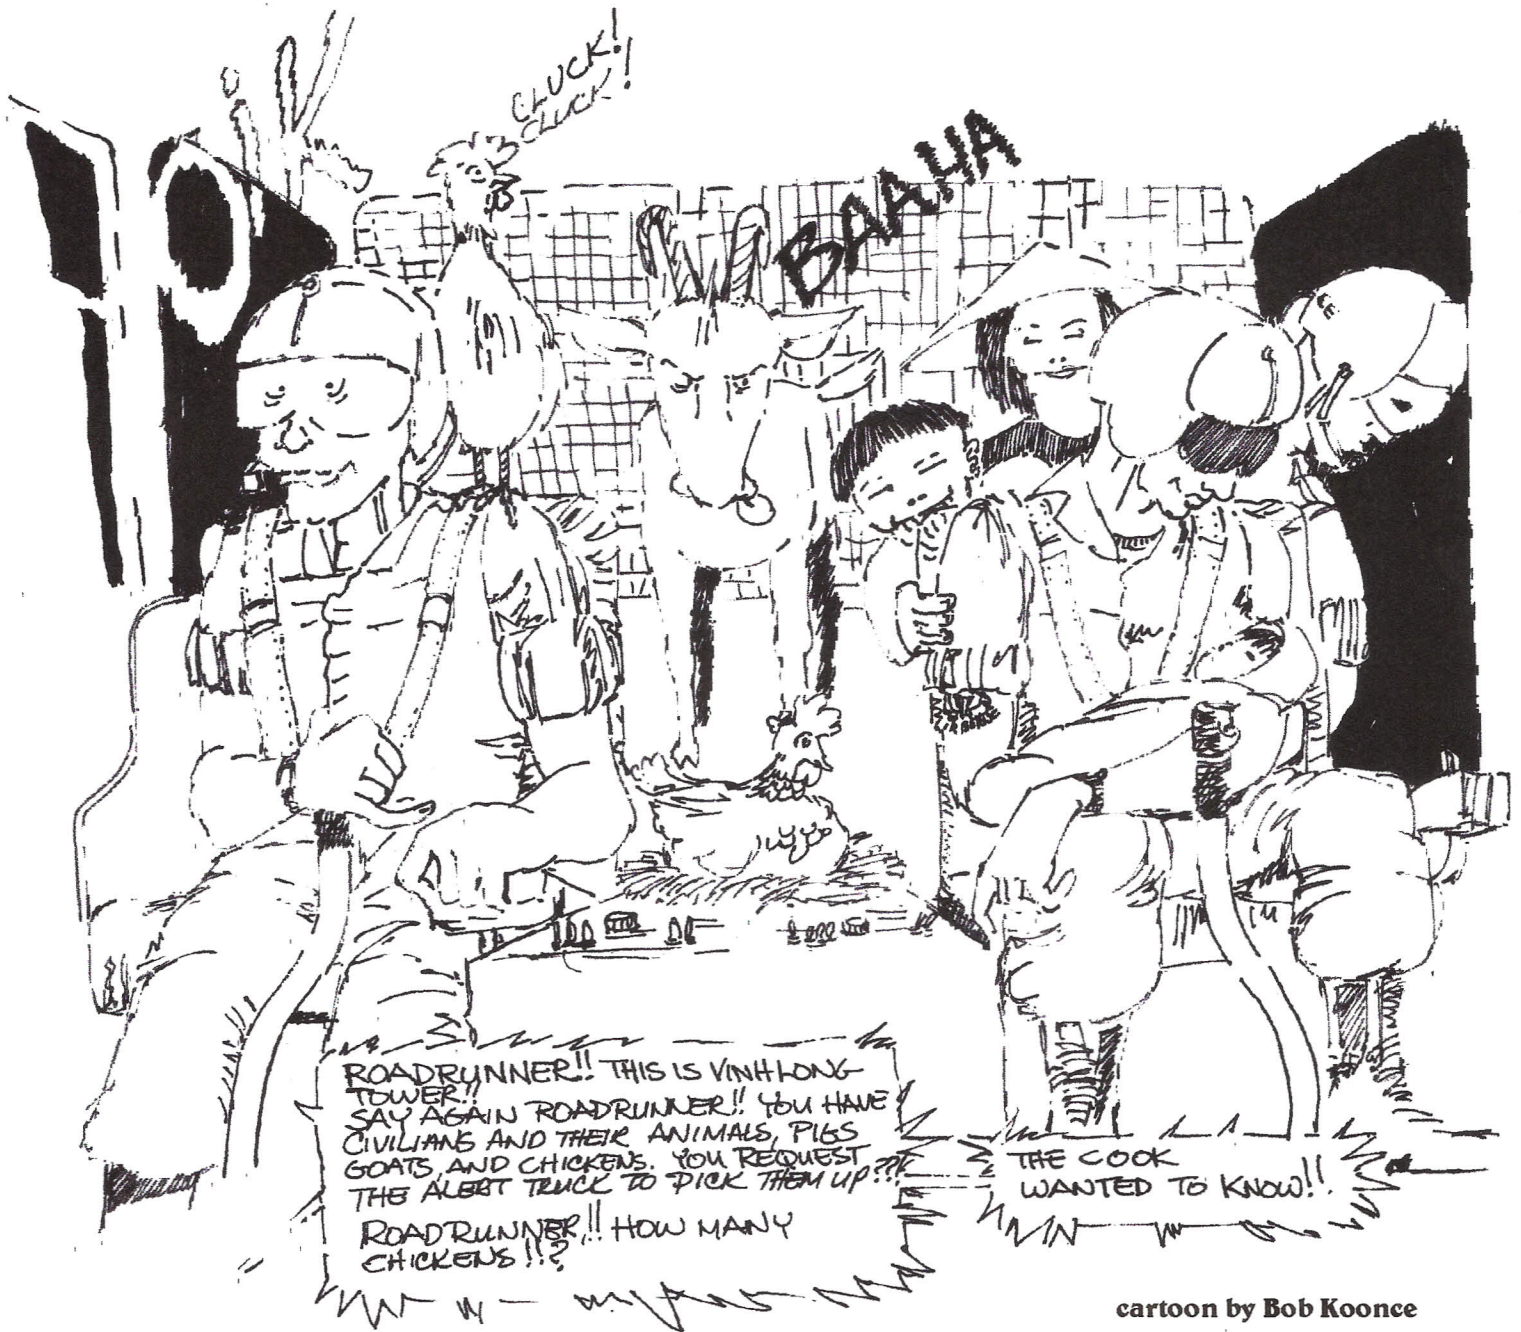 CLUCK!
CLUCK!
BAAHA
ROADRUNNER!! THIS IS VINH LONG
TOWER!!
SAY AGAIN ROADRUNNER!! YOU HAVE
CIVILIANS AND THEIR ANIMALS, PIGS
GOATS, AND CHICKENS. YOU REQUEST
THE ALERT TRUCK TO PICK THEM UP???
ROADRUNNER,!! HOW MANY
CHICKENS!!?
THE COOK
WANTED TO KNOW!!.
cartoon by Bob Koonce